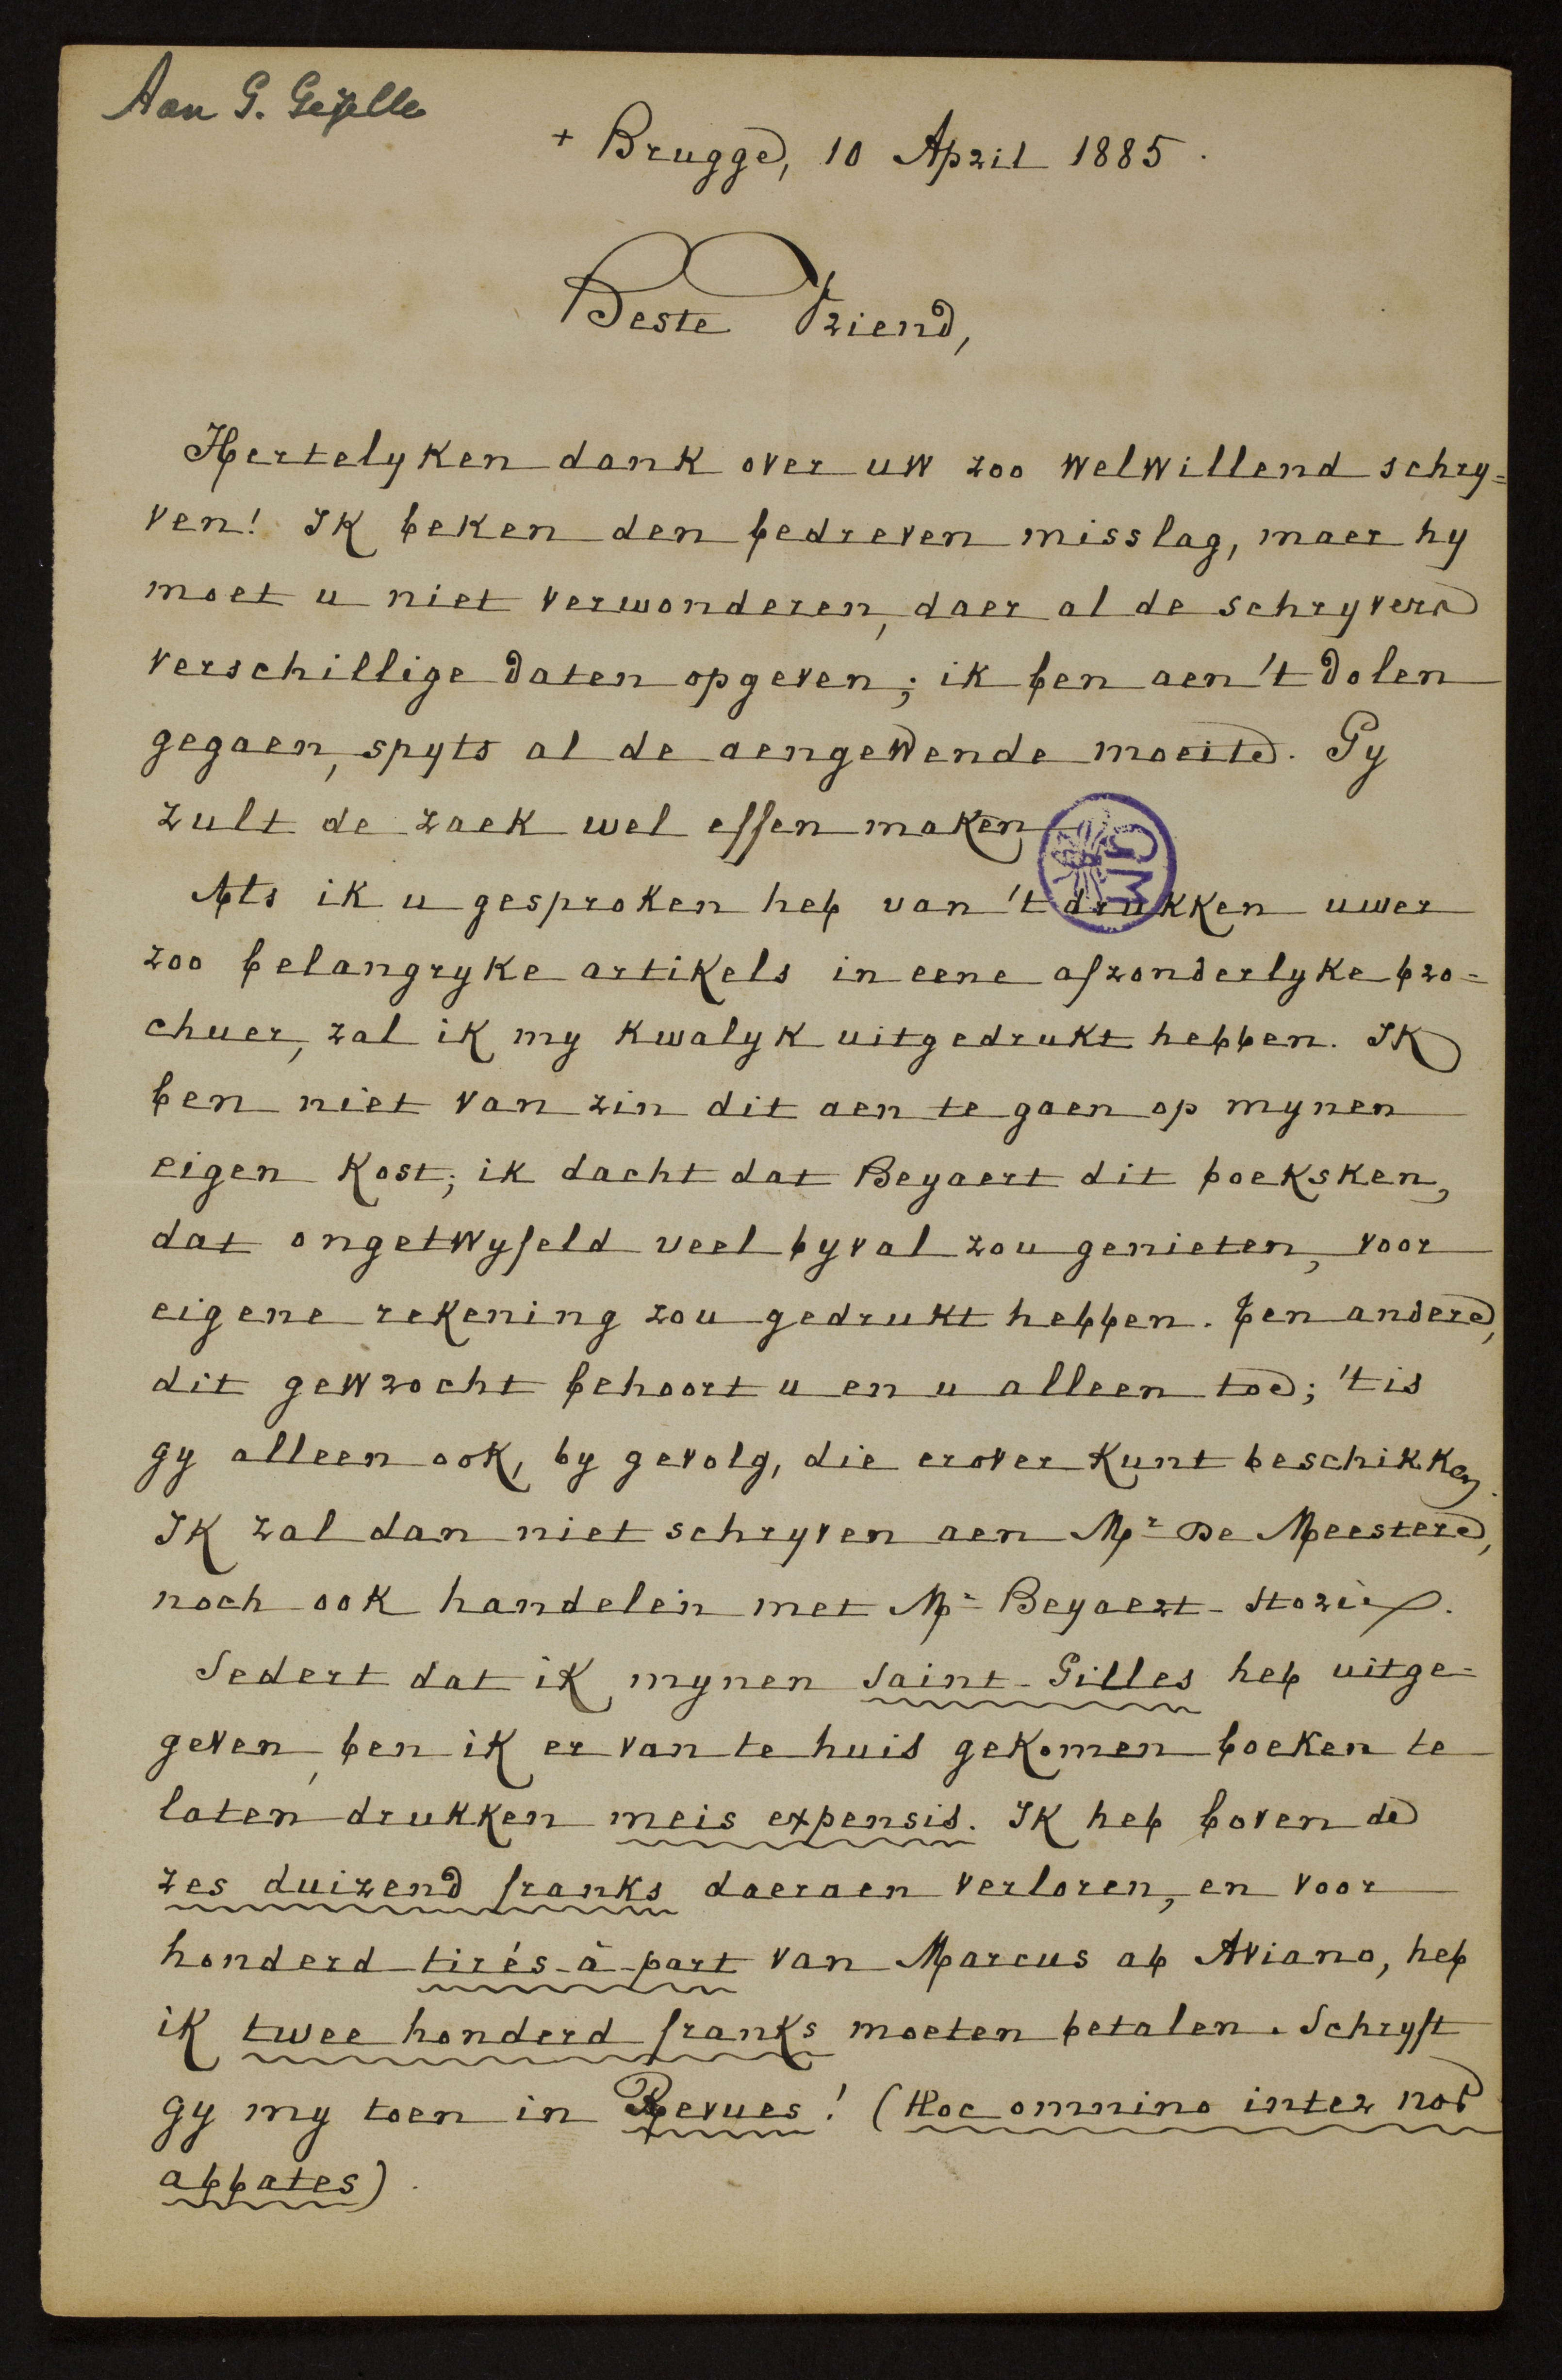 Aan G. Gezelle
+ Brugge, 10 April 1885.
Beste Vriend,
Hertelyken dank over uw zoo welwillend schry=
ven! Ik beken den bedreven misslag, maer hy
moet u niet verwonderen, daer al de schryvers
verschillige daten opgeven; ik ben aen 't dolen
gegaen, spyts al de aengewende moeite. Gy
zult de zaek wel effen maken
GM
Als ik u gesproken heb van 't drukken uwer
zoo belangryke artikels in eene afzonderlyke bro=
chuer, zal ik my kwalyk uitgedrukt hebben. Ik
ben niet van zin dit aen te gaen op mynen
eigen kost; ik dacht dat Beyaert dit boeksken,
dat ongetwyfeld veel byval zou genieten, voor
eigene rekening zou gedrukt hebben. Ten andere,
dit gewrocht behoort u en u alleen toe; 't is
gy alleen ook, by gevolg, die erover kunt beschikken.
Ik zal dan niet schryven aen Mr De Meestere,
noch ook handelen met Mr Beyaert-Storie.
Sedert dat ik mynen Saint-Gilles heb uitge=
geven, ben ik er van te huis gekomen boeken te
laten drukken meis expensis. Ik heb boven de
zes duizend franks daeraen verloren, en voor
honderd tirés-à-part van Marcus ab Aviano, heb
ik twee honderd franks moeten betalen. Schryft
gy my toen in Revues! (Hoc omnino inter nos
abbates).